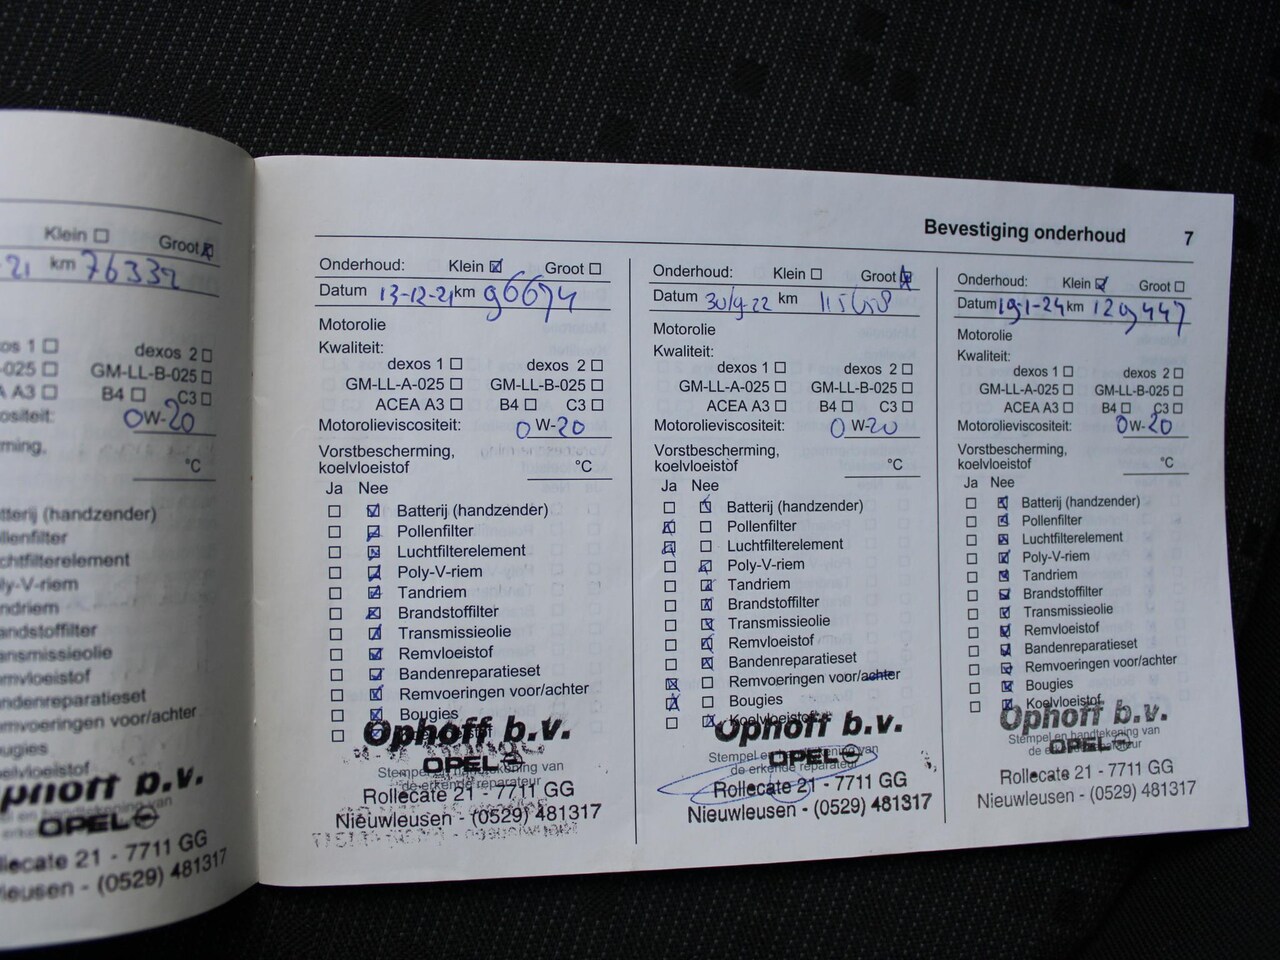 Klein Groot
21 km 76332
dexos 2
GM-LL-B-025
A3 B4 C3
0W-20
°C
(handzender)
Bevestiging onderhoud 7
Onderhoud: Klein Groot
Datum 13-12-21 km 96674
Motorolie
Kwaliteit:
dexos 1 dexos 2
GM-LL-A-025 GM-LL-B-025
ACEA A3 B4 C3
Motorolieviscositeit: 0W-20
Vorstbescherming,
koelvloeistof °C
Ja Nee
Batterij (handzender)
Pollenfilter
Luchtfilterelement
Poly-V-riem
Tandriem
Brandstoffilter
Transmissieolie
Remvloeistof
Bandenreparatieset
Remvoeringen voor/achter
Bougies
Ophoff b.v.
OPEL
Stempel en handtekening van
de erkende reparateur
Rollecate 21 - 7711 GG
Nieuwleusen - (0529) 481317
Onderhoud: Klein Groot
Datum 30/9-22 km
Motorolie
Kwaliteit:
dexos 1 dexos 2
GM-LL-A-025 GM-LL-B-025
ACEA A3 B4 C3
Motorolieviscositeit: 0W-20
Vorstbescherming,
koelvloeistof °C
Ja Nee
Batterij (handzender)
Pollenfilter
Luchtfilterelement
Poly-V-riem
Tandriem
Brandstoffilter
Transmissieolie
Remvloeistof
Bandenreparatieset
Remvoeringen voor/achter
Bougies
Koelvloeistof
Ophoff b.v.
OPEL
Stempel en handtekening van
de erkende reparateur
Rollecate 21 - 7711 GG
Nieuwleusen - (0529) 481317
Onderhoud: Klein Groot
Datum 19-1-24 km 129447
Motorolie
Kwaliteit:
dexos 1 dexos 2
GM-LL-A-025 GM-LL-B-025
ACEA A3 B4 C3
Motorolieviscositeit: 0W-20
Vorstbescherming,
koelvloeistof °C
Ja Nee
Batterij (handzender)
Pollenfilter
Luchtfilterelement
Poly-V-riem
Tandriem
Brandstoffilter
Transmissieolie
Remvloeistof
Bandenreparatieset
Remvoeringen voor/achter
Bougies
Koelvloeistof
Ophoff b.v.
OPEL
Stempel en handtekening van
de erkende reparateur
Rollecate 21 - 7711 GG
Nieuwleusen - (0529) 481317